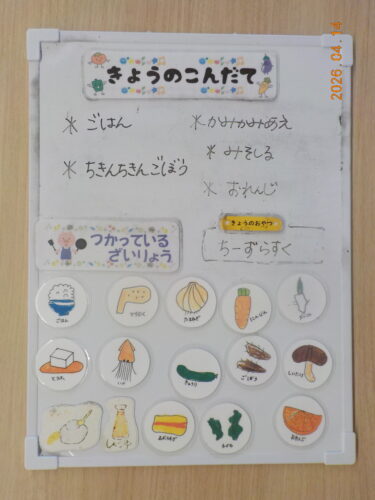 2026. 04. 14
きょうのこんだて
* ごはん
* かみかみあえ
* みそしる
* ちきんちきんごぼう
* おれんじ
つかっている
ざいりょう
きょうのおやつ
ちーずらすく
ごはん
とりにく
たまねぎ
にんじん
とうふ
いか
きゅうり
ごぼう
しいたけ
あぶらあげ
わかめ
おれんじ